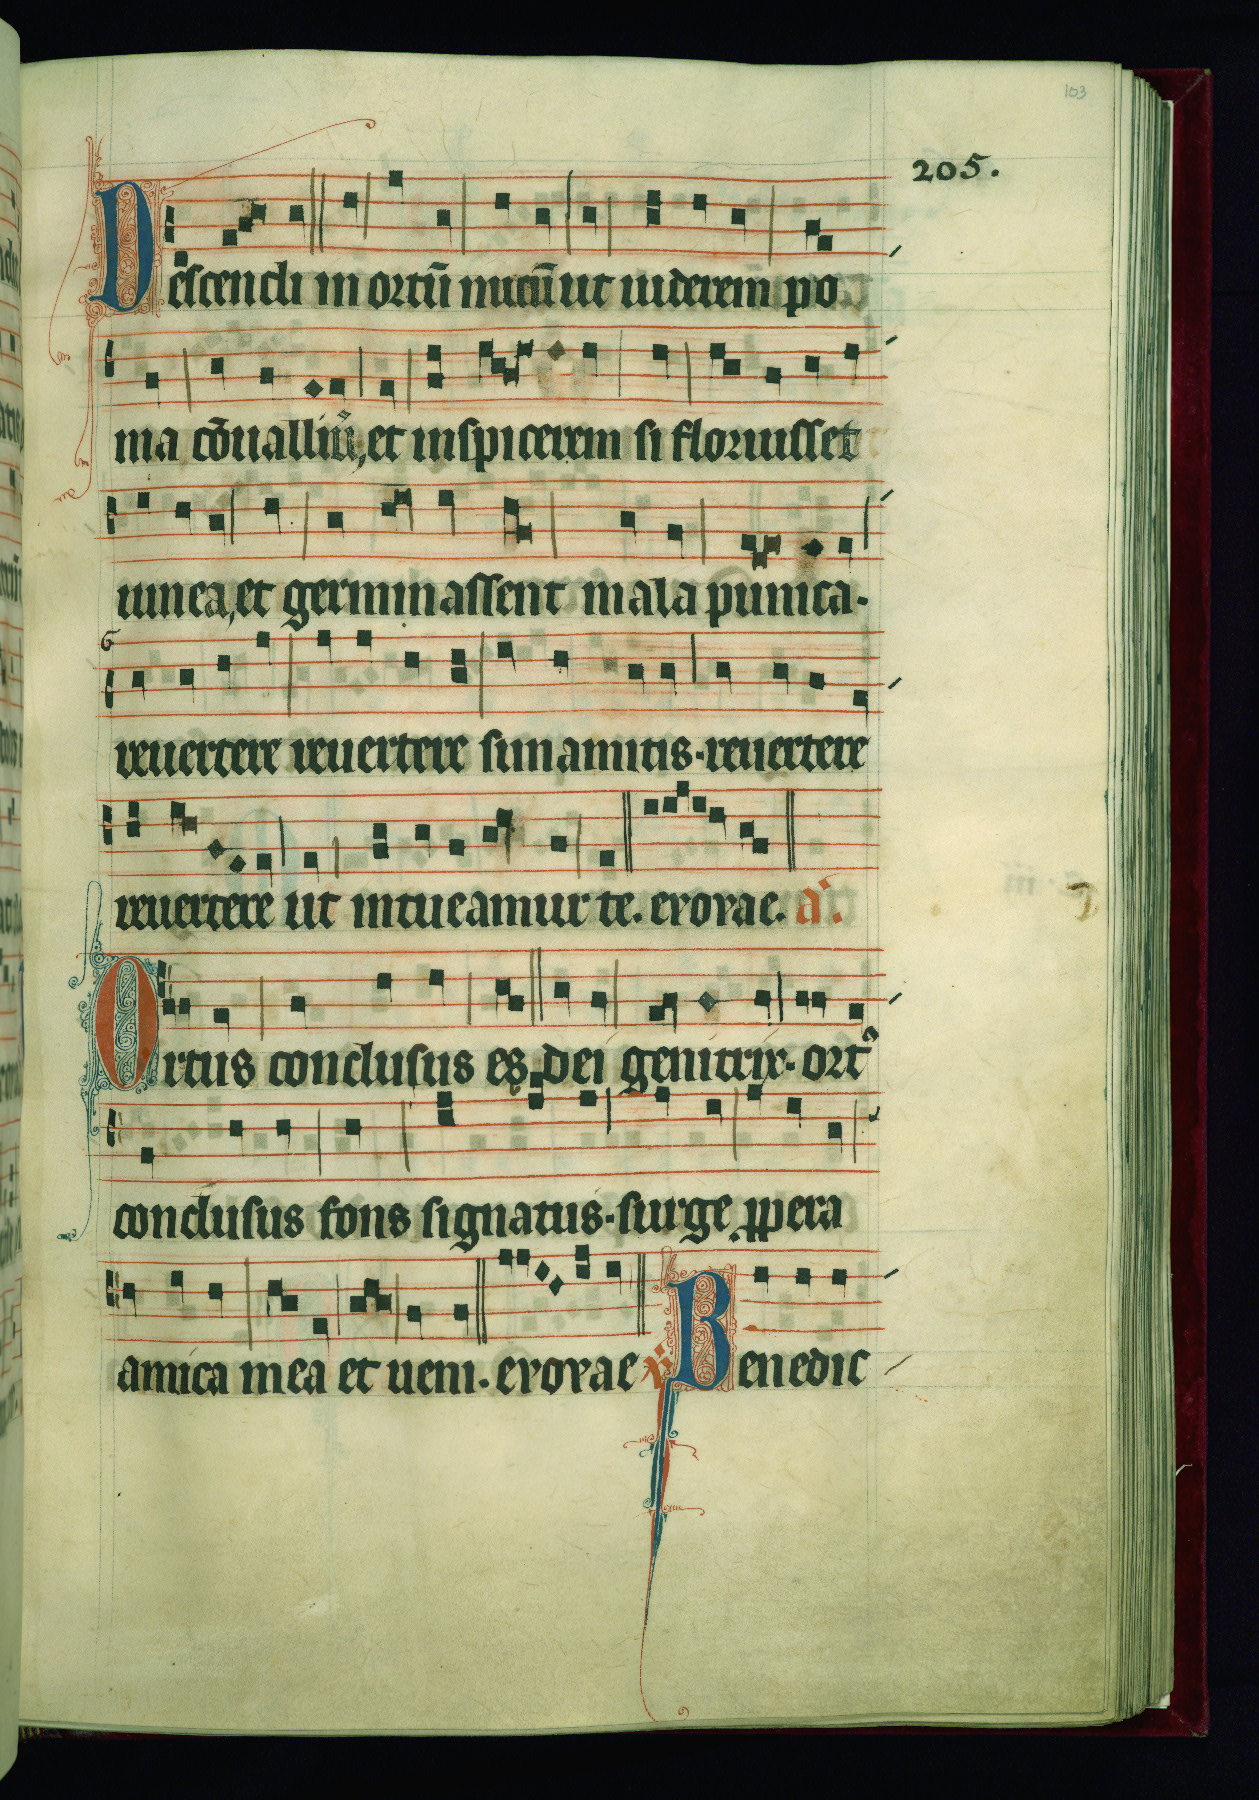 103
205.
Descendi in ortū meū ut uiderem po
ma cōualliū, et inspicerem si floruisset
uinea, et germinassent mala punica.
G
reuertere reuertere sunamitis. reuertere
reuertere ut intueamur te. evovae. a.
Ortus conclusus es dei genitrix. ort9
conclusus fons signatus. surge ppera
amica mea et ueni. evovae R Benedic